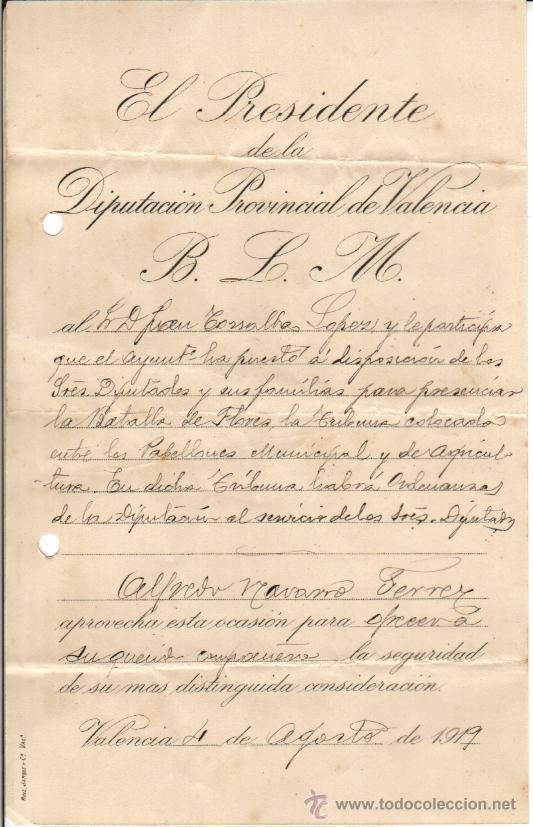 El Presidente
de la
Diputación Provincial de Valencia
B. L. M.
al Sr D Juan Torralba Lopez, y le participa
que el ayunt.º ha puesto á disposición de los
Srés Diputados y sus familias para presenciar
la Batalla de Flores, la Tribuna colocada
entre los Pabellones Municipal y de Agricul-
tura. En dicha Tribuna habrá Ordenanzas
de la Diputación al servicio de los Srés. Diputados
Alfredo Navarro Ferrer
aprovecha esta ocasión para ofrecer á
su querido compañero la seguridad
de su mas distinguida consideración.
Valencia 4 de Agosto de 1919
todocoleccion
www.todocoleccion.net